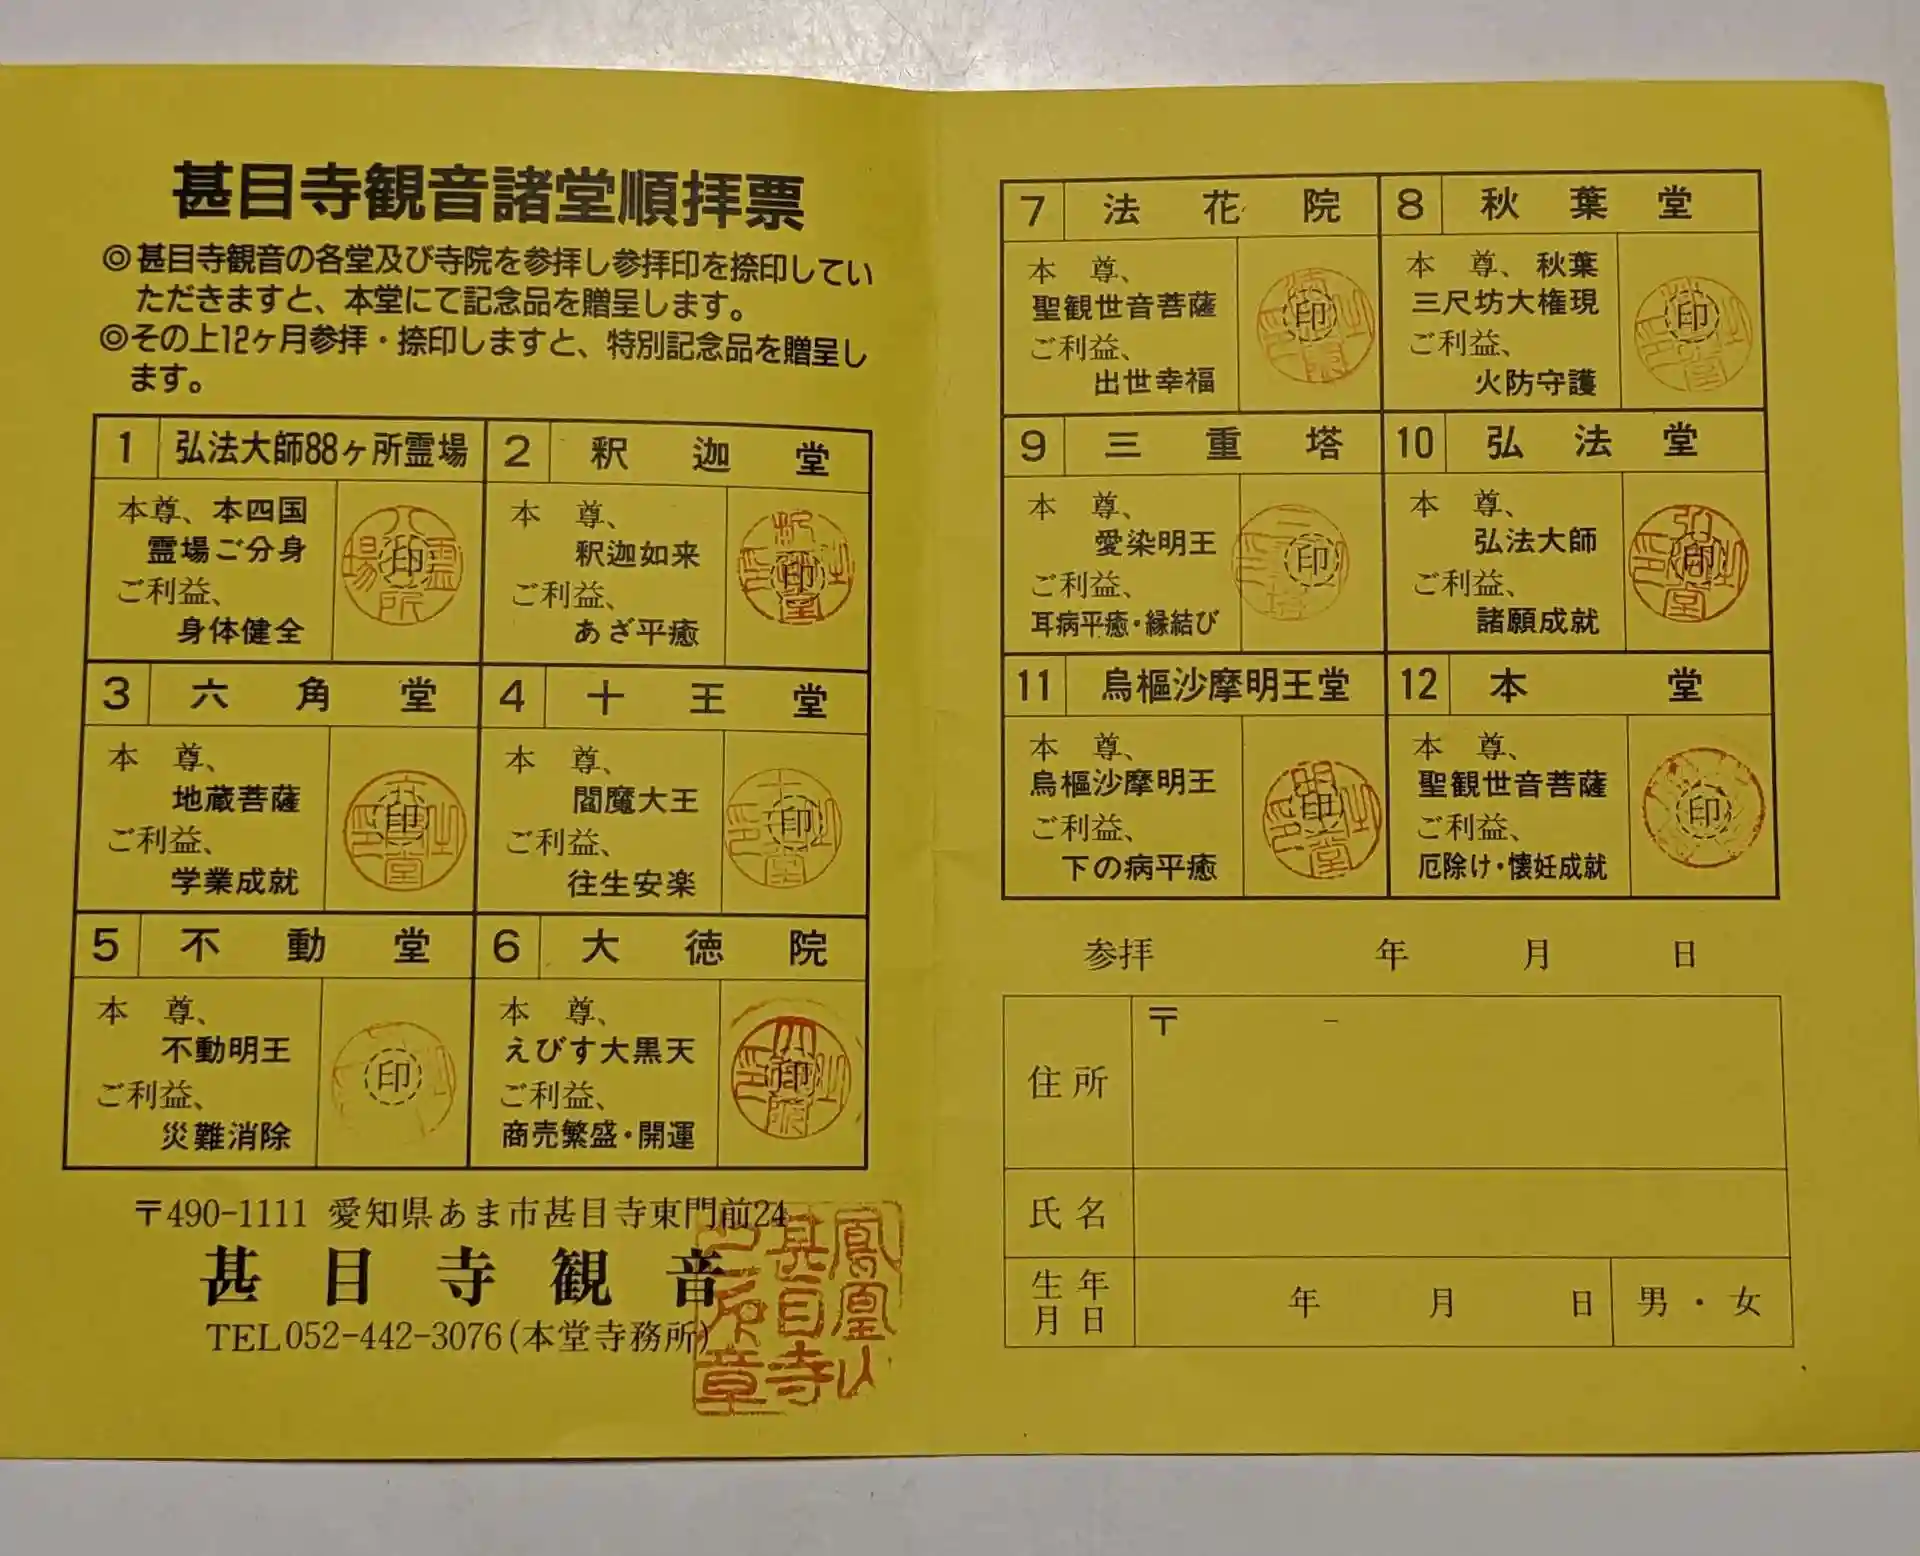 甚目寺観音諸堂順拝票
◎甚目寺観音の各堂及び寺院を参拝し参拝印を捺印してい
ただきますと、本堂にて記念品を贈呈します。
◎その上12ヶ月参拝・捺印しますと、特別記念品を贈呈し
ます。
1 弘法大師88ヶ所霊場
本尊、本四国
霊場ご分身
ご利益、
身体健全
印
八霊場所
2 釈迦堂
本尊、
釈迦如来
ご利益、
あざ平癒
印
3 六角堂
本尊、
地蔵菩薩
ご利益、
学業成就
印
4 十王堂
本尊、
閻魔大王
ご利益、
往生安楽
印
5 不動堂
本尊、
不動明王
ご利益、
災難消除
印
6 大徳院
本尊、
えびす大黒天
ご利益、
商売繁盛・開運
印
〒490-1111 愛知県あま市甚目寺東門前24
甚目寺観音
TEL052-442-3076(本堂寺務所)
鳳凰山
甚目寺
7 法花院
本尊、
聖観世音菩薩
ご利益、
出世幸福
印
8 秋葉堂
本尊、秋葉
三尺坊大権現
ご利益、
火防守護
印
9 三重塔
本尊、
愛染明王
ご利益、
耳病平癒・縁結び
印
10 弘法堂
本尊、
弘法大師
ご利益、
諸願成就
印
11 烏樞沙摩明王堂
本尊、
烏樞沙摩明王
ご利益、
下の病平癒
印
12 本堂
本尊、
聖観世音菩薩
ご利益、
厄除け・懐妊成就
印
参拝 年 月 日
住所 〒 -
氏名
生年月日 年 月 日 男・女